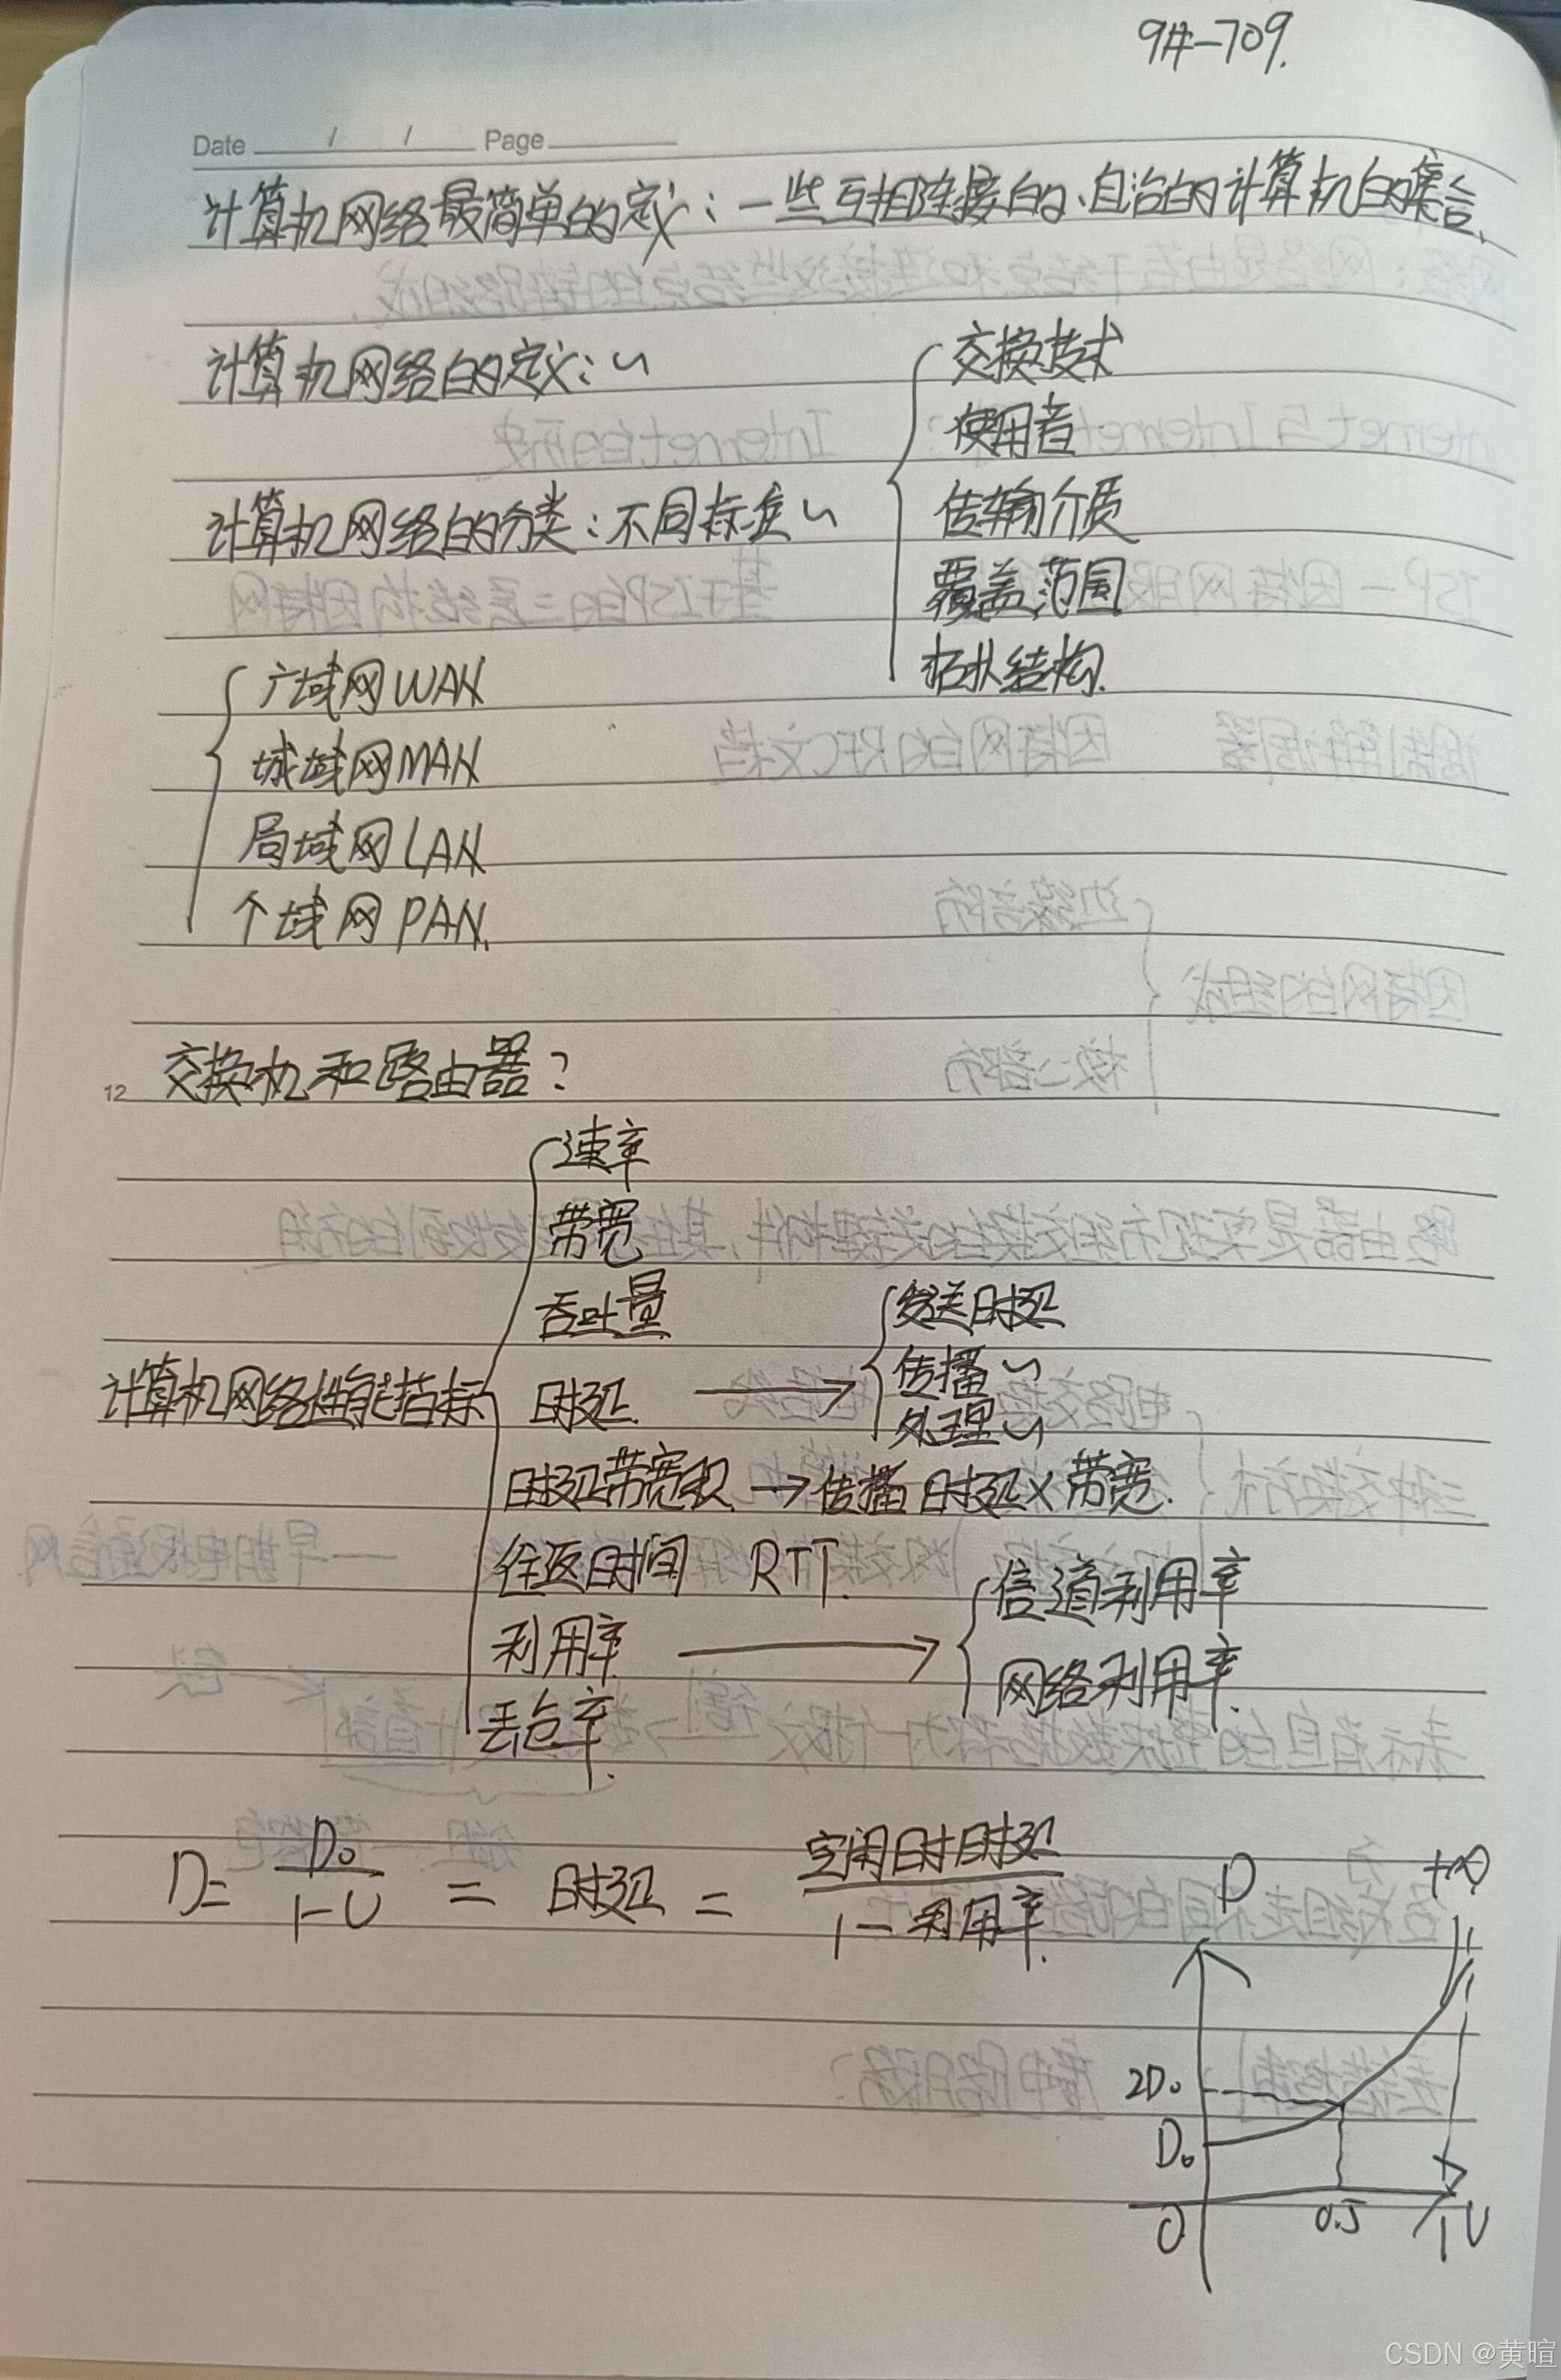 9#-709.
Date / / Page
计算机网络最简单的定义：一些互相连接的、自治的计算机的集合、
计算机网络的定义：~
计算机网络的分类：不同标准~
交换技术
使用者
传输介质
覆盖范围
拓扑结构.
广域网WAN
城域网MAN
局域网LAN
个域网PAN.
12
交换机和路由器？
计算机网络性能指标
速率
带宽
吞吐量
时延 → 发送时延
传播~
处理~
时延带宽积 → 传播时延×带宽.
往返时间 RTT.
利用率 → 信道利用率
网络利用率.
丢包率.
D= D₀/1-U = 时延 = 空闲时时延/1-利用率.
D +∞
2D₀
D₀
0 0.5 1 U
CSDN @黄暄